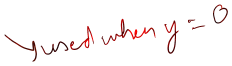 used when y = 0